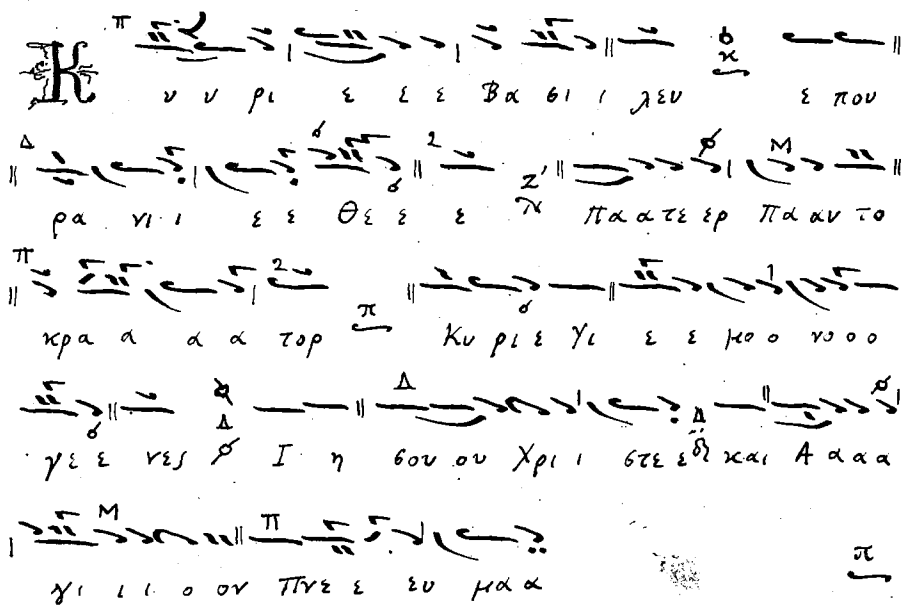 Κ υ υ ρι ε ε ε Βα σι ι λευ ε που
ρα νι ι ε ε Θε ε ε Πα α τε ερ Πα αν το
κρα α α α τορ Κυ ρι ε Υι ε ε μο ο νο ο ο
γε ε νες Ι η σου ου Χρι ι στε ε και Α α α α
γι ι ι ο ον Πνε ε ευ μα α